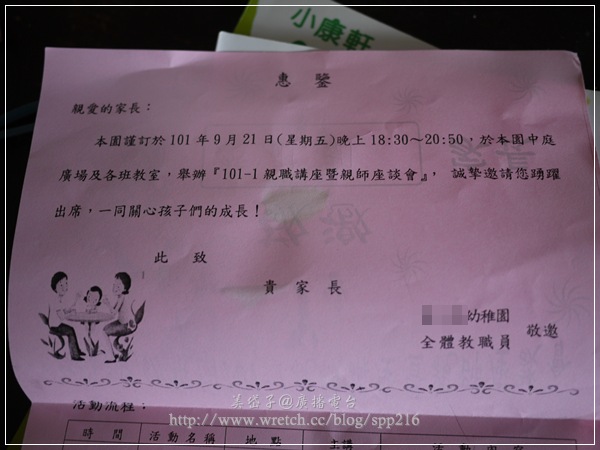 小康軒
惠 鑒
親愛的家長：
本園謹訂於101年9月21日(星期五)晚上18:30～20:50，於本園中庭
廣場及各班教室，舉辦『101-1親職講座暨親師座談會』，誠摯邀請您踴躍
出席，一同關心孩子們的成長！
此 致
貴 家 長
幼稚園
全體教職員 敬邀
活動流程：
時 間 活動名稱 地 點 主講 活 動 內 容
美盛子@廣播電台
http://www.wretch.cc/blog/spp216